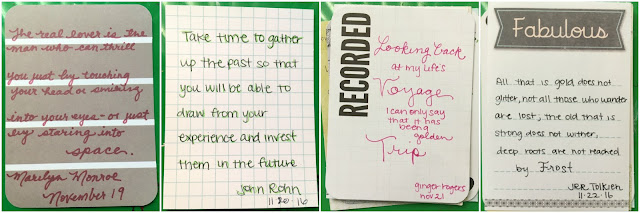 The real lover is the
man who can thrill
you just by touching
your head or smiling
into your eyes - or just
by staring into
space.
Marilyn Monroe
November 19
Take time to gather
up the past so that
you will be able to
draw from your
experience and invest
them in the future
John Rohn
11·20·16
RECORDED
Looking back
at my life's
Voyage
I can only say
that it has
being
golden
Trip
ginger rogers
nov 21
Fabulous
All that is gold does not
glitter, not all those who wander
are lost; the old that is
strong does not wither,
deep roots are not reached
by Frost
JRR Tolkien
11·22·16